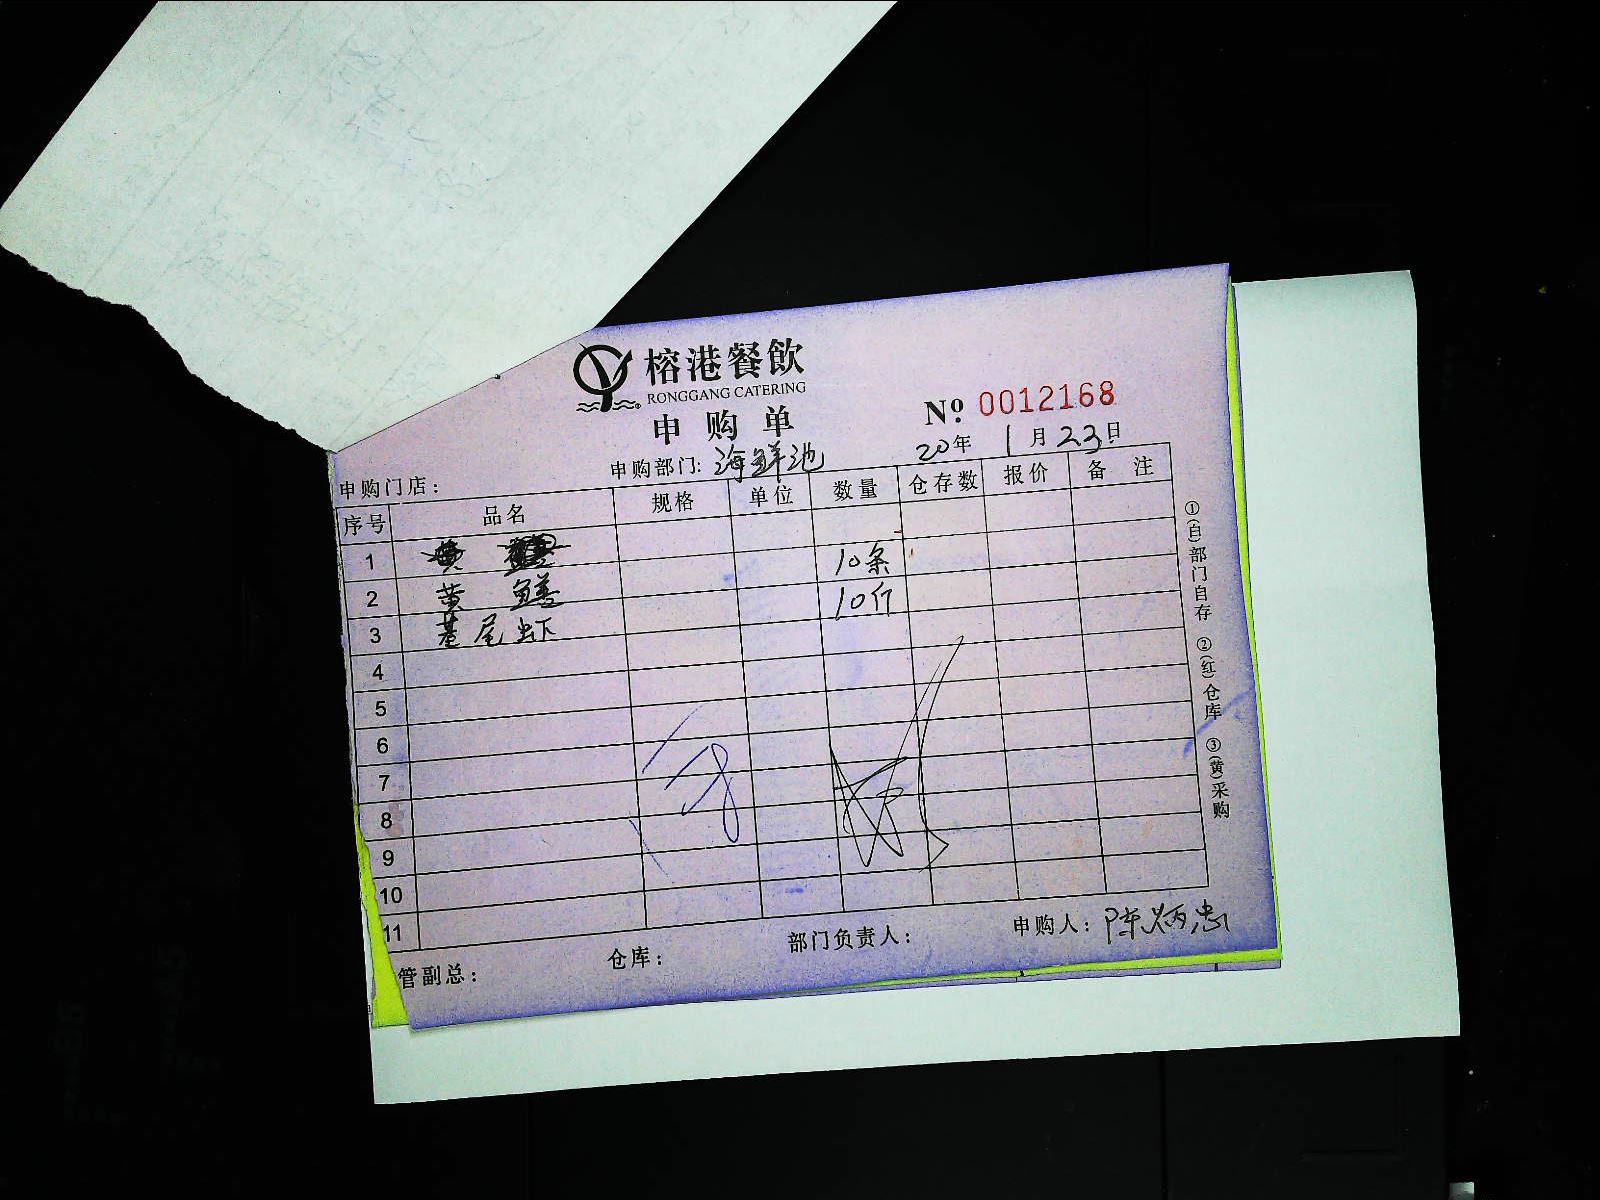 榕港餐飲
RONGGANG CATERING
申购单
Nº 0012168
20年 1月23日
申购门店： 申购部门: 海鲜池
序号 品名 规格 单位 数量 仓存数 报价 备注
1
2 黄鳝 10条
3 基尾虾 10斤
4
5
6
7
8
9
10
11
管副总： 仓库： 部门负责人： 申购人：陈炳忠
①(白)部门自存 ②(红)仓库 ③(黄)采购